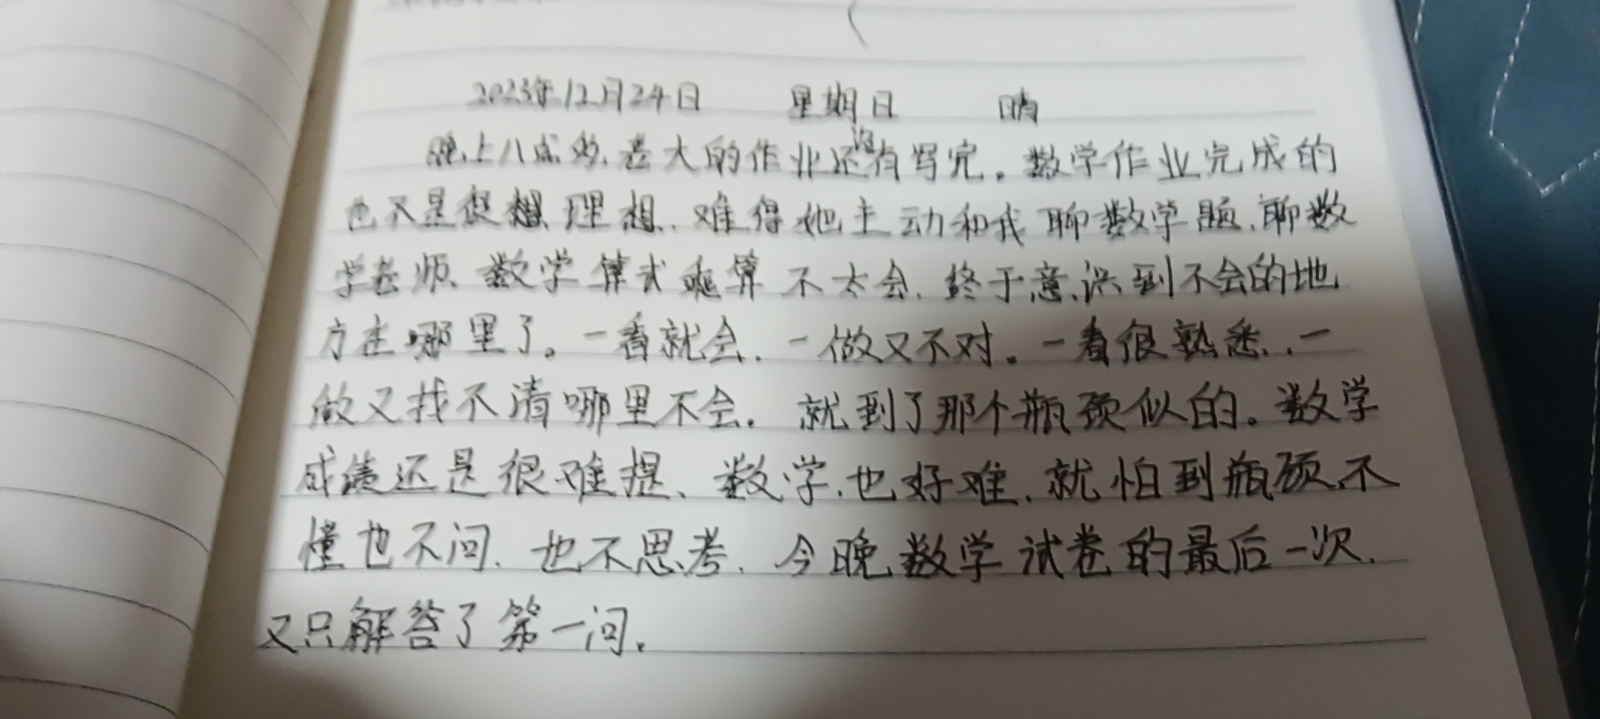 2023年12月24日 星期日 晴
晚上八点多,老大的作业还没有写完。数学作业完成的
也不是很理想,难得她主动和我聊数学题,聊数
学老师,数学算式乘算不太会,终于意识到不会的地
方在哪里了。一看就会,一做又不对。一看很熟悉,一
做又找不清哪里不会。就到了那个瓶颈似的。数学
成绩还是很难提,数学也好难,就怕到瓶颈,不
懂也不问,也不思考,今晚数学试卷的最后一次,
又只解答了第一问。